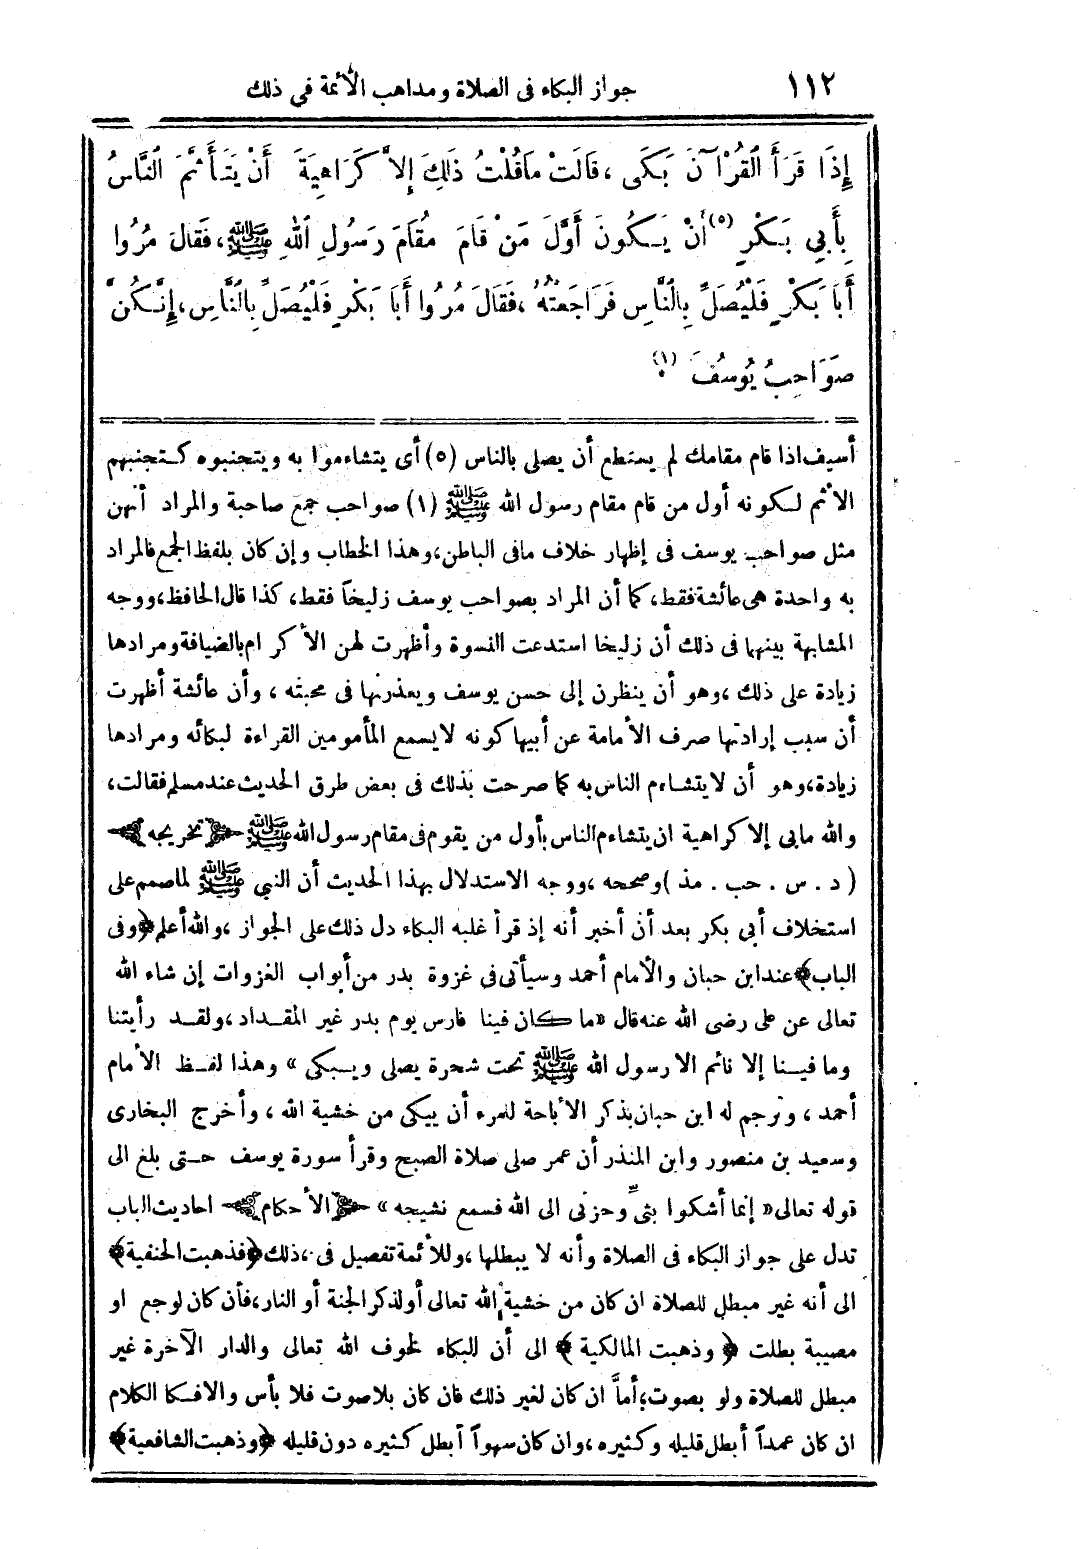 ١١٢ جواز البكاء فى الصلاة ومذاهب الأئمة في ذلك
إِذَا قَرَأَ الْقُرْآنَ بَكَى ، قَالَتْ مَاقُلْتُ ذَلِكَ إِلاَّ كَرَاهِيَةَ أَنْ يَتَأَثَّمَ النَّاسُ
بِأَبِي بَكْرٍ (٥) أَنْ يَكُونَ أَوَّلَ مَنْ قَامَ مَقَامَ رَسُولِ اللهِ ﷺ ، فَقَالَ مُرُوا
أَبَا بَكْرٍ فَلْيُصَلِّ بِالنَّاسِ فَرَاجَعَتْهُ ، فَقَالَ مُرُوا أَبَا بَكْرٍ فَلْيُصَلِّ بِالنَّاسِ ، إِنَّكُنَّ
صَوَاحِبُ يُوسُفَ (١) .
أسيف اذا قام مقامك لم يستطع أن يصلى بالناس (٥) أى يتشاءموا به ويتجنبوه كتجنبهم
الأثم لكونه أول من قام مقام رسول الله ﷺ (١) صواحب جمع صاحبة والمراد أنهن
مثل صواحب يوسف فى إظهار خلاف مافى الباطن، وهذا الخطاب وإن كان بلفظ الجمع فالمراد
به واحدة هى عائشة فقط، كما أن المراد بصواحب يوسف زليخاً فقط، كذا قال الحافظ، ووجه
المشابهة بينهما فى ذلك أن زليخا استدعت النسوة وأظهرت لهن الأكرام بالضيافة ومرادها
زيادة على ذلك ، وهو أن ينظرن إلى حسن يوسف ويعذرنها فى محبته ، وأن عائشة أظهرت
أن سبب إرادتها صرف الأمامة عن أبيها كونه لايسمع المأمومين القراءة لبكائه ومرادها
زيادة، وهو أن لايتشاءم الناس به كما صرحت بذلك فى بعض طرق الحديث عند مسلم فقالت،
والله مابى إلا كراهية ان يتشاءم الناس بأول من يقوم فى مقام رسول الله ﷺ ﴿تخريجه﴾
(د . س . حب . مذ) وصححه ، ووجه الاستدلال بهذا الحديث أن النبي ﷺ لما صمم على
استخلاف أبي بكر بعد أن أخبر أنه إذ قرأ غلبه البكاء دل ذلك على الجواز ، والله أعلم ﴿وفى
الباب﴾ عند ابن حبان والأمام أحمد وسيأتى فى غزوة بدر من أبواب الغزوات إن شاء الله
تعالى عن على رضى الله عنه قال «ما كان فينا فارس يوم بدر غير المقداد ، ولقد رأيتنا
وما فينا إلا نائم الا رسول الله ﷺ تحت شجرة يصلى ويبكى» وهذا لفظ الأمام
أحمد ، وترجم له ابن حبان بذكر الأباحة للمرء أن يبكى من خشية الله ، وأخرج البخارى
وسعيد بن منصور وابن المنذر أن عمر صلى صلاة الصبح وقرأ سورة يوسف حتى بلغ الى
قوله تعالى «إنما أشكوا بثى وحزنى الى الله فسمع نشيجه» ﴿الأحكام﴾ احاديث الباب
تدل على جواز البكاء فى الصلاة وأنه لا يبطلها ، وللأئمة تفصيل فى ذلك ﴿فذهبت الحنفية﴾
الى أنه غير مبطل للصلاة ان كان من خشية الله تعالى أو لذكر الجنة أو النار، فأن كان لوجع او
مصيبة بطلت ﴿وذهبت المالكية﴾ الى أن البكاء لخوف الله تعالى والدار الآخرة غير
مبطل للصلاة ولو بصوت، أما ان كان لغير ذلك فان كان بلا صوت فلا بأس والا فكا الكلام
ان كان عمداً أبطل قليله وكثيره ، وان كان سهواً أبطل كثيره دون قليله ﴿وذهبت الشافعية﴾